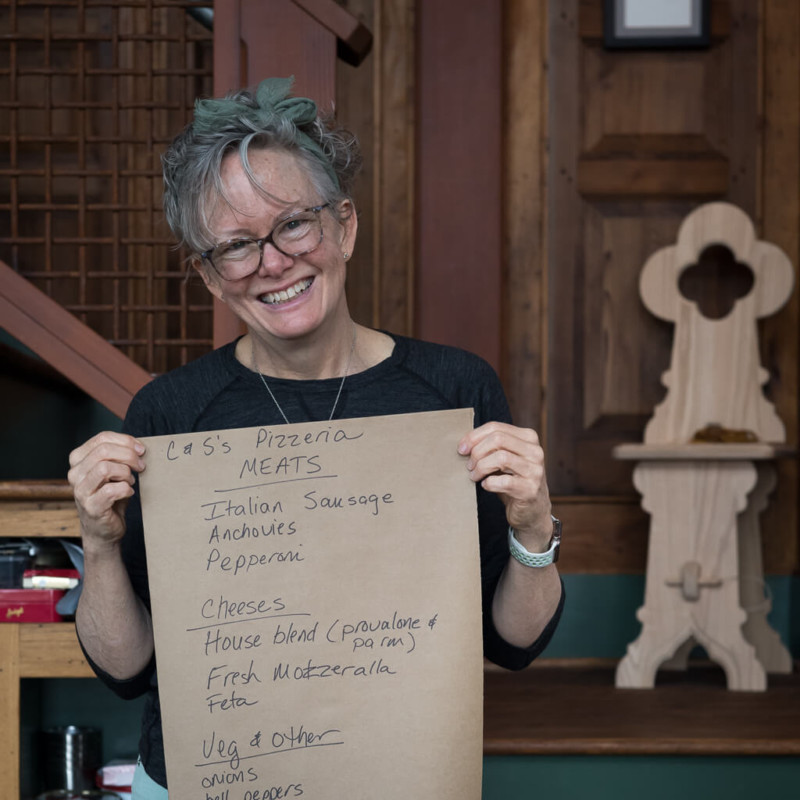 C & S's Pizzeria
MEATS
Italian Sausage
Anchovies
Pepperoni
Cheeses
House blend (provalone &
parm)
Fresh Mozzeralla
Feta
Veg & other
onions
bell peppers